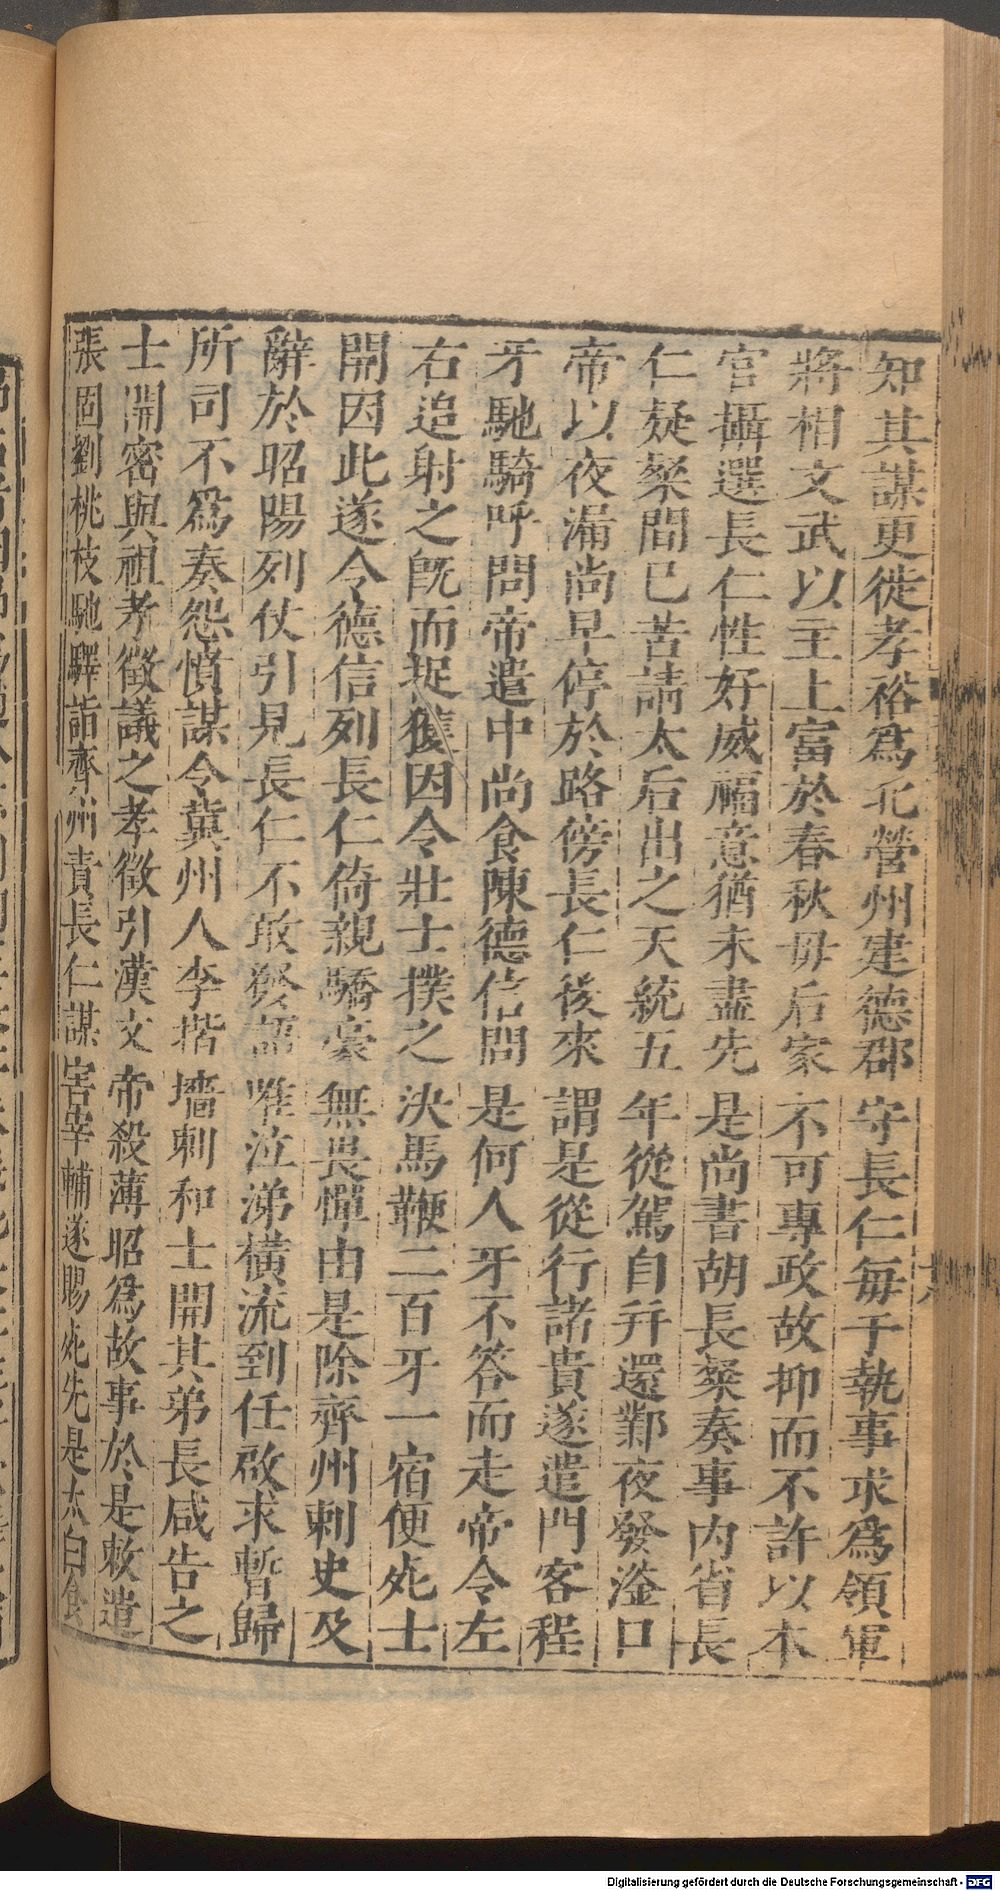 知其謀更徙孝裕爲北營州建德郡守長仁每于執事求爲領軍
將相文武以主上富於春秋毋后家不可專政故抑而不許以本
官攝選長仁性好威福意猶未盡先是尚書胡長粲奏事內省長
仁疑粲間已苦請太后出之天統五年從駕自幷還鄴夜發滏口
帝以夜漏尚早停於路傍長仁後來謂是從行諸貴遂遣門客程
牙馳騎呼問帝遣中尚食陳德信問是何人牙不答而走帝令左
右追射之旣而捉獲因令壯士撲之決馬鞭二百牙一宿便死士
開因此遂令德信列長仁倚親驕豪無畏憚由是除齊州刺史及
辭於昭陽列仗引見長仁不敢發語唯泣涕橫流到任啟求暫歸
所司不爲奏怨憤謀令冀州人李揩墻刺和士開其弟長咸告之
士開密與祖孝徵議之孝徵引漢文帝殺薄昭爲故事於是敕遣
張固劉桃枝馳驛詣齊州責長仁謀害宰輔遂賜死先是太白食
十六
Digitalisierung gefördert durch die Deutsche Forschungsgemeinschaft - DFG